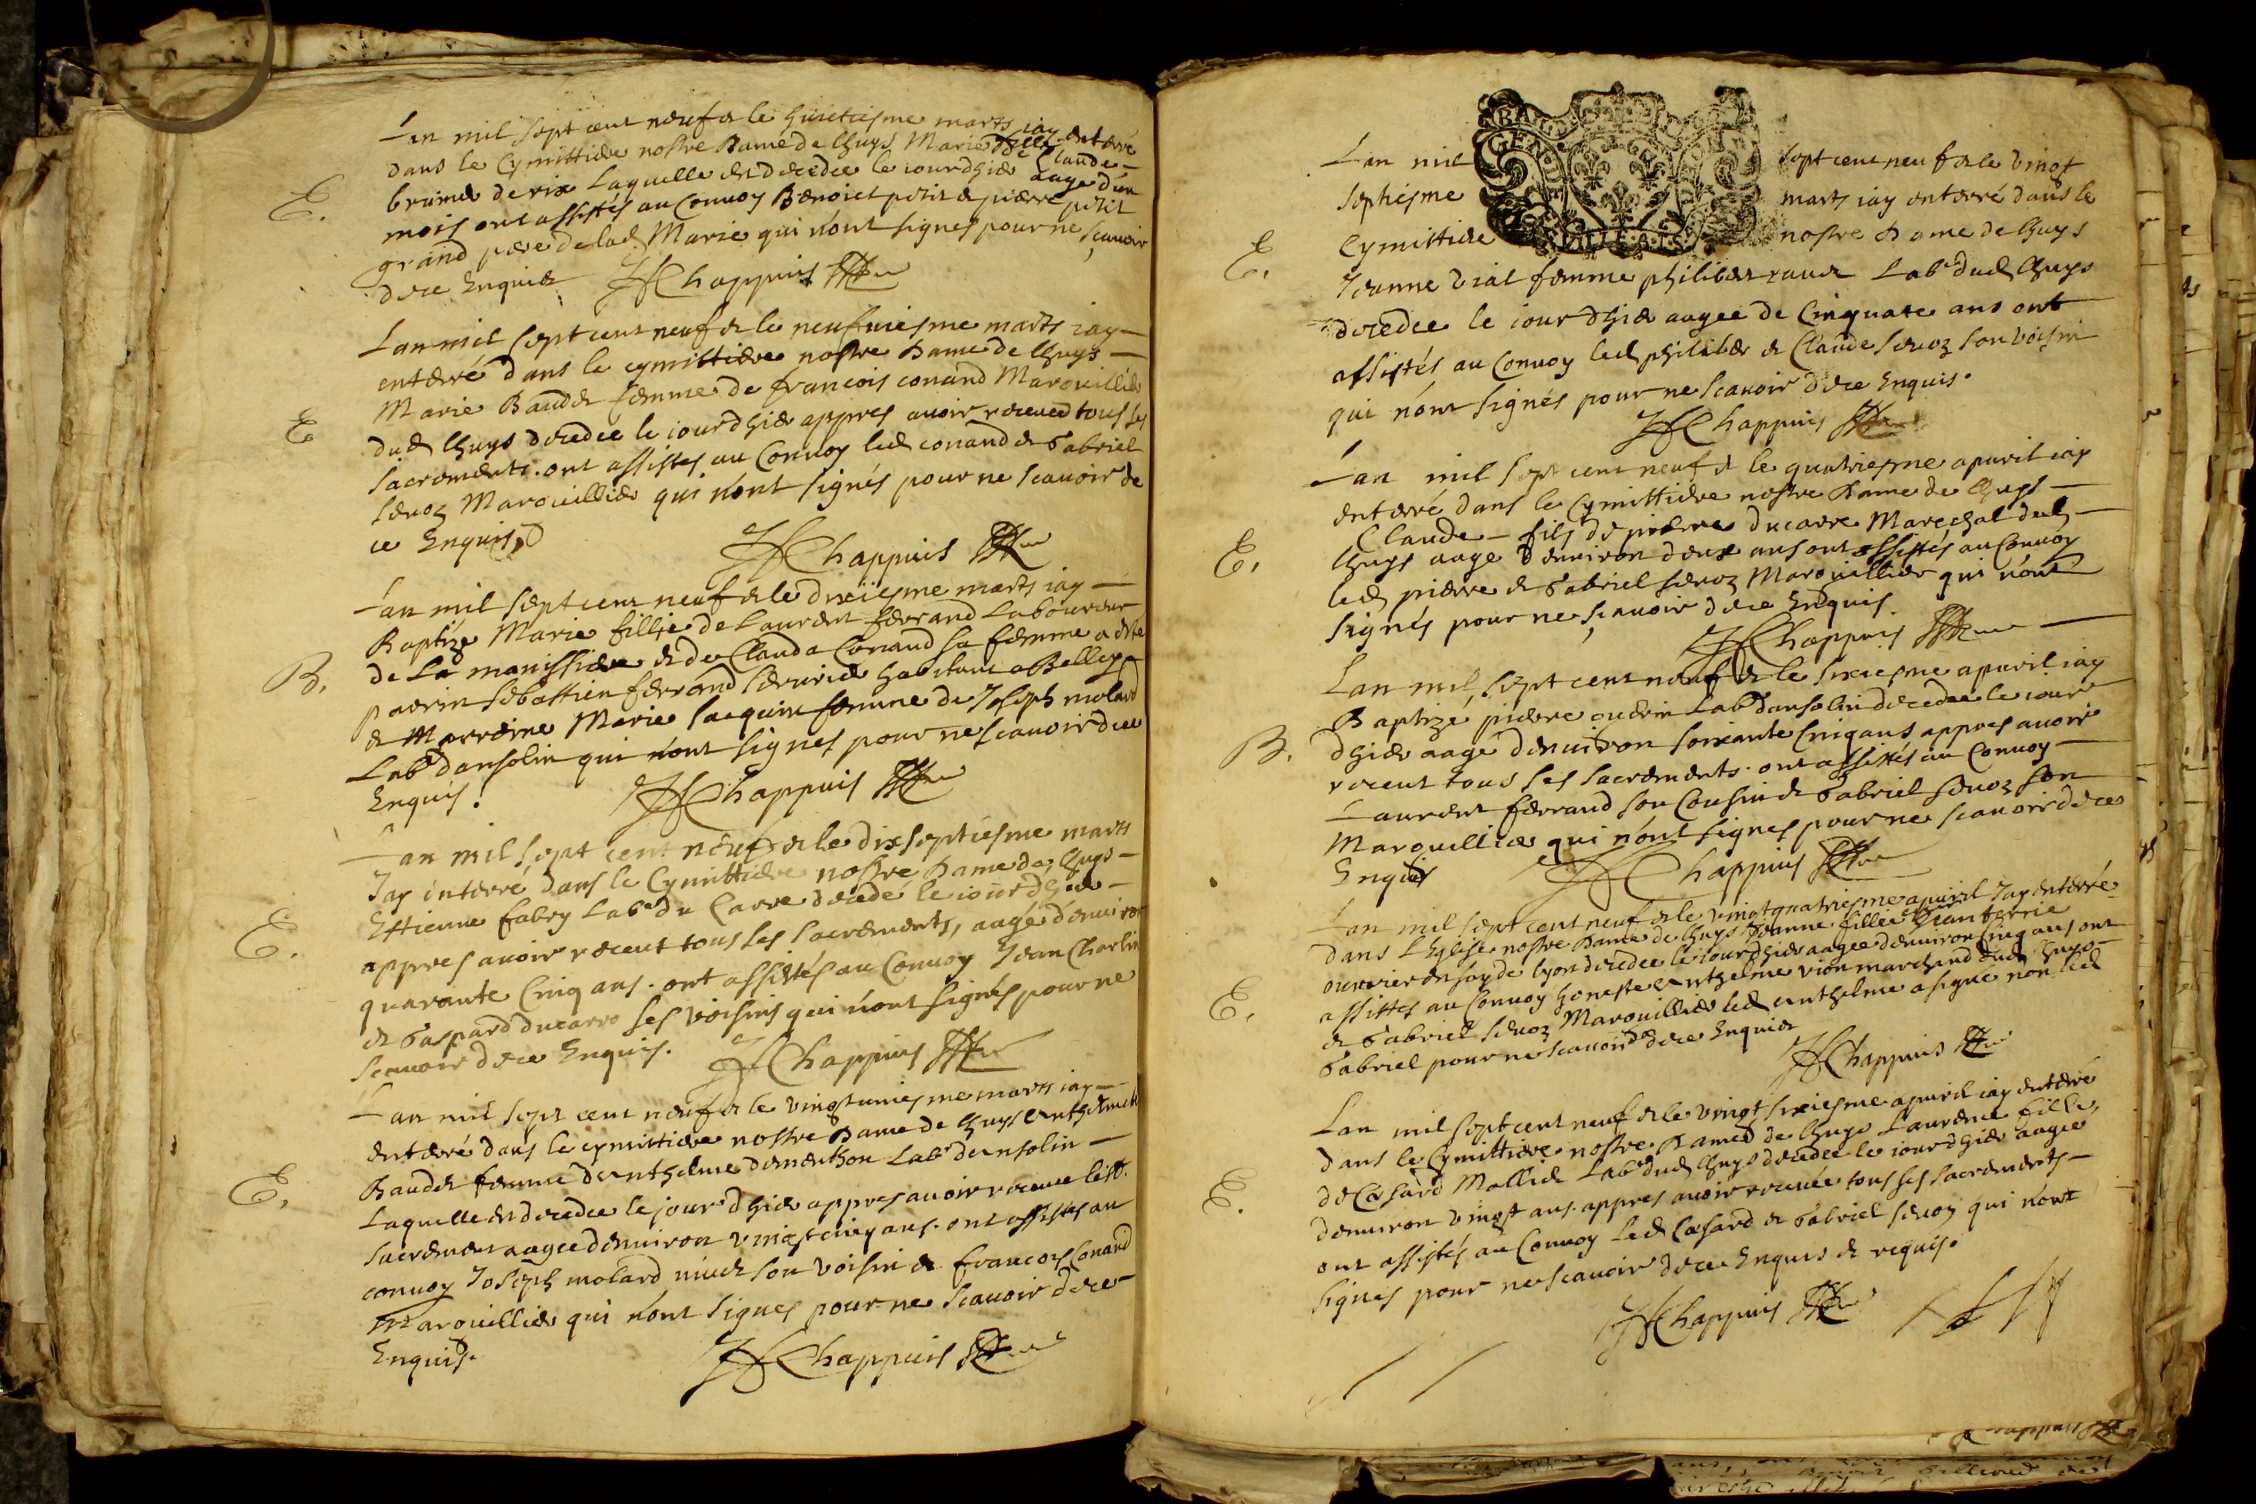 Lan mil sept cent neuf & le huictiesme mars iay enterré
dans le Cymittiere nostre Dame de Chuys Marie fille Claude
brunet de rix laquelle est decedee le iourdhier aage d'un
E.
mois ont assistés au Convoy Benoict petit & pierre petit
grand pere de lad Marie qui n'ont signes pour ne scavoir
de ce Enquis JfChappuis
Lan mil sept cent neuf & le neufviesme mars iay
enterré dans le cymittiere nostre Dame de Chuys
Marie Baudet femme de francois conand Marouillier
E
dud Chuys decedee le iourdhier appres avoir receu tous les
sacrements. ont assistes au Convoy led conand & Gabriel
seuoz Marouillier qui n'ont signés pour ne scavoir de
ce Enquis
JfChappuis
Lan mil sept cent neuf & le dixiesme mars iay
Baptize Marie fillie de Laurent ferrand Laboureur
de La manissiere & de Clauda Conand sa femme a esté
B.
parrin sebattien ferrand serurier habitant a Belley
& Marreine Marie Jacquin femme de Joseph molard
Labr dansolin qui n'ont signes pour ne scavoir de ce
Enquis.
JfChappuis
Lan mil sept cent neuf & le dixseptiesme mars
Jay enterré dans le Cymittiere nostre Dame de Chuys
Ettienne fabry Labr du Carre decedé le iourdhier
E.
appres avoir receut tous les sacrements, aagé d'environ
quarante Cinq ans. ont assistés au Convoy Jean Charlin
& Gaspard ducarro ses voisins qui n'ont signés pour ne
scavoir de ce Enquis. JfChappuis
Lan mil sept cent neuf & le vingtuniesme mars iay
enterré dans le cymittiere nostre Dame de Chuys Anthelmett
Baudet femme d'anthelme dementhon Labr d'ansolin
E.
Laquelle est decedee le jourdhier appres avoir receue les st.
sacrement aagee d'environ vingt cinq ans. ont assistes au
convoy Joseph molard niuet son voisin & francois Conand
Marouillier qui n'ont signes pour ne scavoir de ce
Enquis.
JfChappuis
Lan mil sept cent neuf & le vingt
septiesme mars iay enterré dans le
E.
Cymittiere nostre Dame de Chuys
Jeanne vial femme philibert ravet Labr dud Chuys
decedee le iourdhier aagee de Cinquate ans ont
assistés au Convoy led philibert & Claude seuoz son voisin
qui n'ont signés pour ne scavoir de ce Enquis.
JfChappuis
Lan mil sept cent neuf & le quatriesme apuril iay
enterré dans le Cymittiere nostre Dame de Chuys
Claude fils de pierre ducarre Marechal dud
E.
Chuys aage d'environ deux ans ont assistés au Convoy
led pierre & Gabriel seuoz Marouillier qui n'ont
signés pour ne scavoir de ce Enquis.
JfChappuis
Lan mil sept cent neuf & le sixiesme apuril iay
Baptizé pierre guerin Labr dansolin decedee le iour
dhier aagé d'environ soixante Cinq ans appres avoir
B.
receut tous ses sacrements. ont assistés au Convoy
Laurent ferrand son Cousin & Gabriel seuoz son
Marouillier qui n'ont signes pour ne scavoir de ce
Enquis
JfChappuis
Lan mil sept cent neuf & le vingtquatriesme apuril Jay enterré
dans l'Eglise nostre Dame de Chuys Jeanne fille Jean ferrie
ouvrier en soy de lyon decedee le iourdhier aagee d'environ Cinq ans ont
E.
assittes au Convoy honeste anthelme vion marchand dud Chuys
& Gabriel seuoz Marouillier led anthelme a signe non led
Gabriel pour ne scavoir de ce Enquis
JfChappuis
Lan mil sept cent neuf & le vingt sixiesme apuril iay enterré
dans le Cymittiere nostre Dame de Chuys Laurence fille,
de Cesard Mallier Labr dud Chuys decedee le iourdhier aagee
E.
d'environ vingt ans. appres avoir receuée tous ses sacrements
ont assistés au Convoy led Cesard & Gabriel seuoz qui n'ont
signés pour ne scavoir de ce Enquis & requis.
JfChappuis